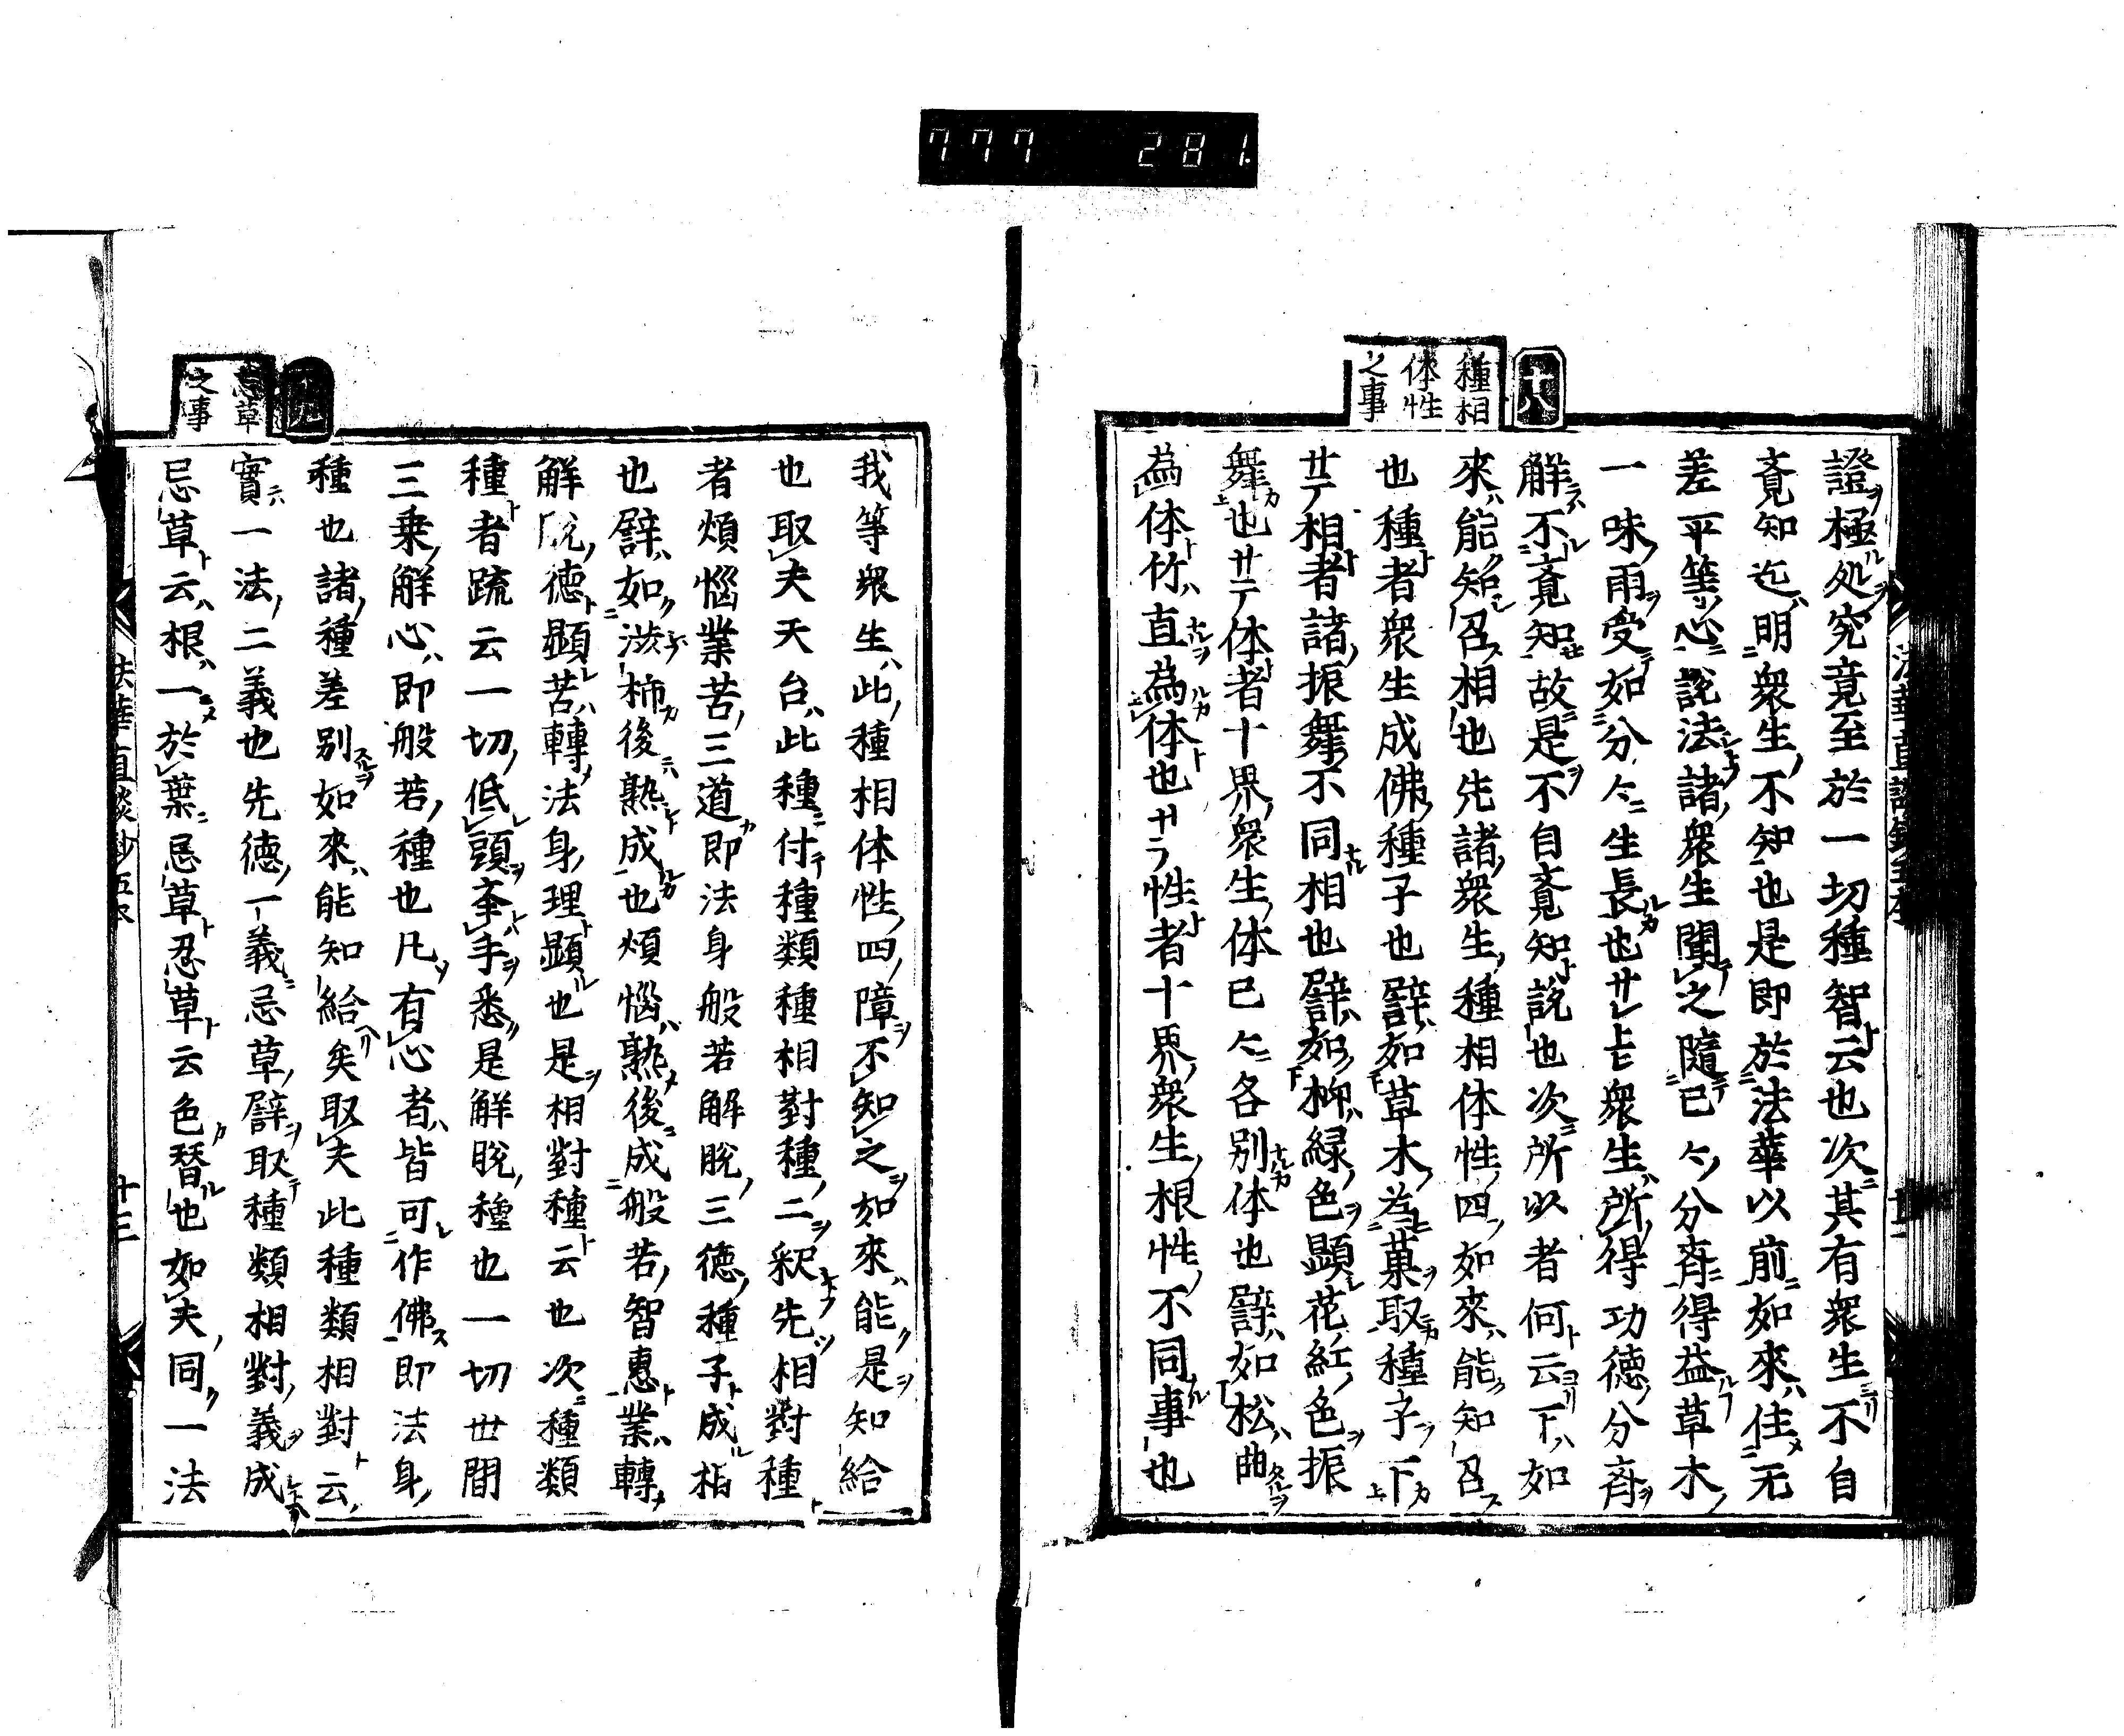 777 281.
十八
種相
体性
之事
證極処究竟至於一切種智云也次其有衆生不自
覚知迄明衆生不知也是即於法華以前如來住无
差平等心說法諸衆生聞之隨已〻分斉得益草木
一味雨受如分〻生長也サレトモ衆生所得功徳分斉
解不覚知故是不自覚知說也次所以者何云下如
來能知召相也先諸衆生種相体性四如來能知召
也種者衆生成佛種子也譬如草木為菓取種子下
サテ相者諸振舞不同相也譬如柳緑色顕花紅色振
舞也サテ体者十界衆生体已〻各別体也譬如松曲
為体竹直為体也サラ性者十界衆生根性不同事也
我等衆生此種相体性四障不知之如來能是知給
也取夫天台此種付種類種相對種二釈先相對種
者煩惱業苦三道即法身般若解脫三徳種子成相
也譬如渋柿後熟成也煩惱熟後成般若智惠業轉
解脫徳顕苦轉法身理顕也是相對種云也次種類
種者疏云一切低頭挙手悉是解脫種也一切世間
三乗解心即般若種也凡有心者皆可作佛即法身
種也諸種差別如來能知給矣取夫此種類相對云
實一法二義也先徳一義忌草譬取種類相對義成
忌草云根一於葉忌草忍草云色替也如夫同一法
草
之事
法華直談鈔五
十三